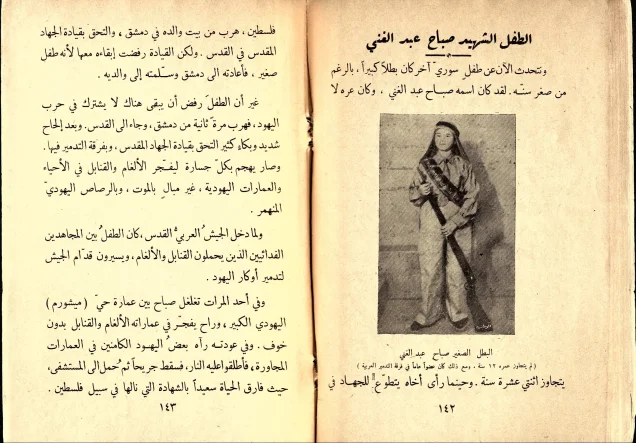 الطفل الشهيد صباح عبد الغني
ونتحدث الآن عن طفل سوريّ آخر كان بطلاً كبيراً ، بالرغم
من صغر سنّه . لقد كان اسمه صباح عبد الغني ، وكان عمره لا
البطل الصغير صباح عبد الغني
( لم يتجاوز عمره ١٢ سنة . ومع ذلك كان عضواً هاماً في فرقة التدمير العربية )
يتجاوز اثنتي عشرة سنة . وحينما رأى أخاه يتطوّع للجهاد في
١٤٢
فلسطين ، هرب من بيت والده في دمشق ، والتحق بقيادة الجهاد
المقدس في القدس . ولكن القيادة رفضت إبقاءه معها لأنه طفل
صغير ، فأعادته الى دمشق وسلّمته إلى والديه .
غير أن الطفل رفض أن يبقى هناك لا يشترك في حرب
اليهود ، فهرب مرة ثانية من دمشق ، وجاء الى القدس . وبعد إلحاح
شديد وبكاء كثير التحق بقيادة الجهاد المقدس ، وبفرقة التدمير فيها .
وصار يهجم بكلّ جسارة ليفجّر الألغام والقنابل في الأحياء
والعمارات اليهودية ، غير مبالٍ بالموت ، وبالرصاص اليهوديّ
المنهمر .
ولما دخل الجيش العربيّ القدس ، كان الطفل بين المجاهدين
الفدائيين الذين يحملون القنابل والألغام ، ويسيرون قدّام الجيش
لتدمير أوكار اليهود .
وفي أحد المرات تغلغل صباح بين عمارة حيّ ( ميشورم )
اليهودي الكبير ، وراح يفجّر في عماراته الألغام والقنابل بدون
خوف . وفي عودته رآه بعض اليهود الكامنين في العمارات
المجاورة ، فأطلقوا عليه النار ، فسقط جريحاً ثم حُمل الى المستشفى ،
حيث فارق الحياة سعيداً بالشهادة التي نالها في سبيل فلسطين .
١٤٣